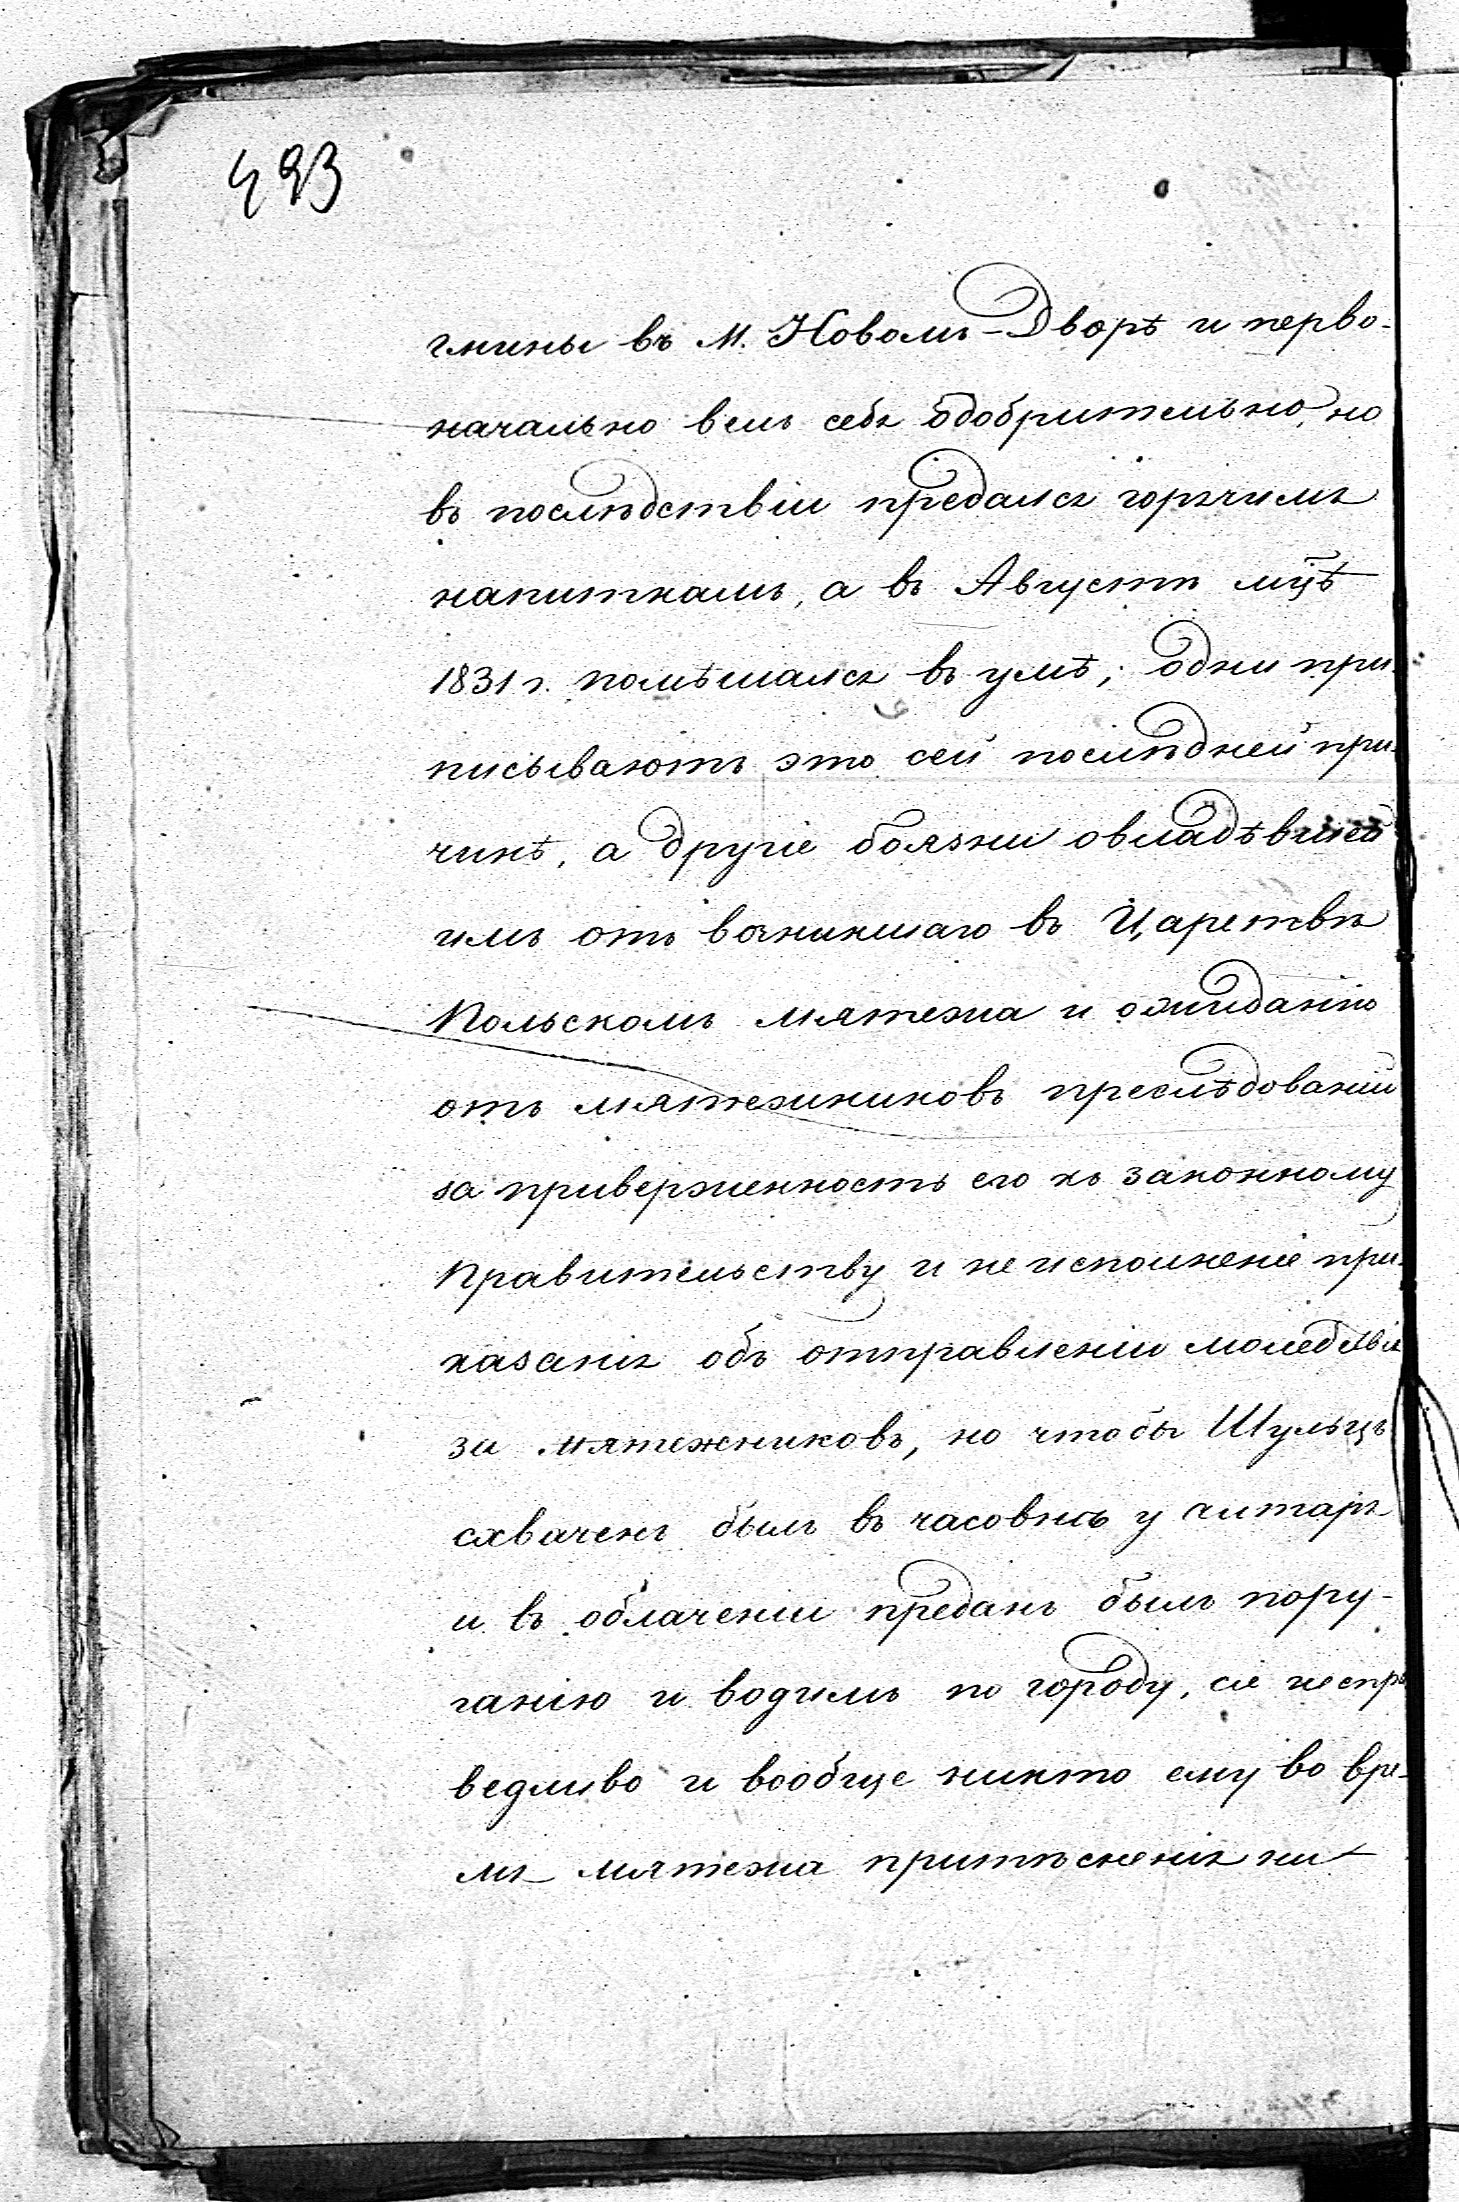 493
гмины въ м. Новомъ-Дворѣ и перво-
начально велъ себя одобрительно, но
въ послѣдствіи предался горячимъ
напиткамъ, а въ Августѣ мцѣ
1831 г. помѣшался въ умѣ; одни при-
писываютъ это сей послѣдней при-
чинѣ, а другіе боязни овладѣвшей
имъ отъ возникшаго въ Царствѣ
Польскомъ мятежа и ожиданію
отъ мятежниковъ преслѣдованій
за приверженность его къ законному
Правительству и не исполненіе при-
казанія объ отправленіи молебствія
за мятежниковъ, но чтобы Шульцъ
схваченъ былъ въ часовнѣ у алтаря
и въ облаченіи преданъ былъ пору-
ганію и водимъ по городу, сіе неспра
ведливо и вообще никто ему во вре-
мя мятежа притѣсненія ни